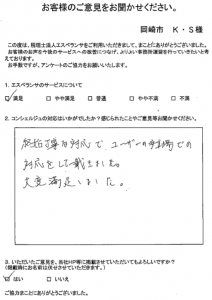 お客様のご意見をお聞かせください。
岡崎市 K・S様
この度は、税理士法人エスペランサをご利用いただきまして、まことにありがとうございました。
お客様のお声を今後のサービスへの改善につなげ、よりよい事務所運営を行っていきたいと考えております。
お手数ですが、アンケートのご協力をお願いいたします。
1. エスペランサのサービスについて
☑満足 □やや満足 □普通 □やや不満 □不満
2. コンシェルジュの対応はいかがでしたか？感じられたことやご意見等お聞かせください。
終始丁寧な対応で、ユーザーの立場での
対応をして戴きました。
大変満足しました。
3. いただいたご意見を、自社HP等に掲載させていただいてもよろしいですか？
(掲載時にお名前は伏せさせていただきます。)
☑はい □いいえ
ご協力まことにありがとうございました。